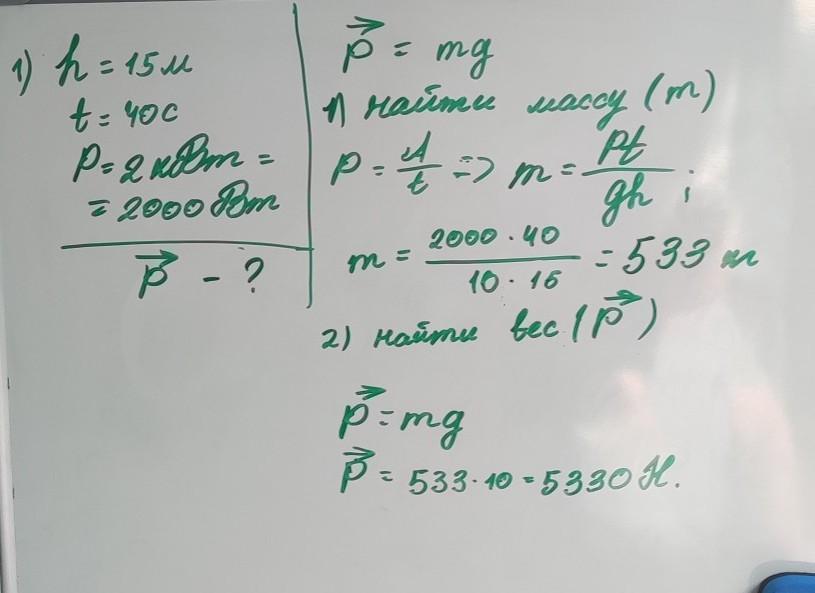 1) h = 15м
t = 40с
P = 2 кВт =
= 2000 Вт
P⃗ - ?
P⃗ = mg
1) найти массу (m)
P = A/t => m = Pt/gh ;
m = 2000 · 40 / 10 · 15 = 533 т
2) найти вес (P⃗)
P⃗ = mg
P⃗ = 533 · 10 = 5330 Н.